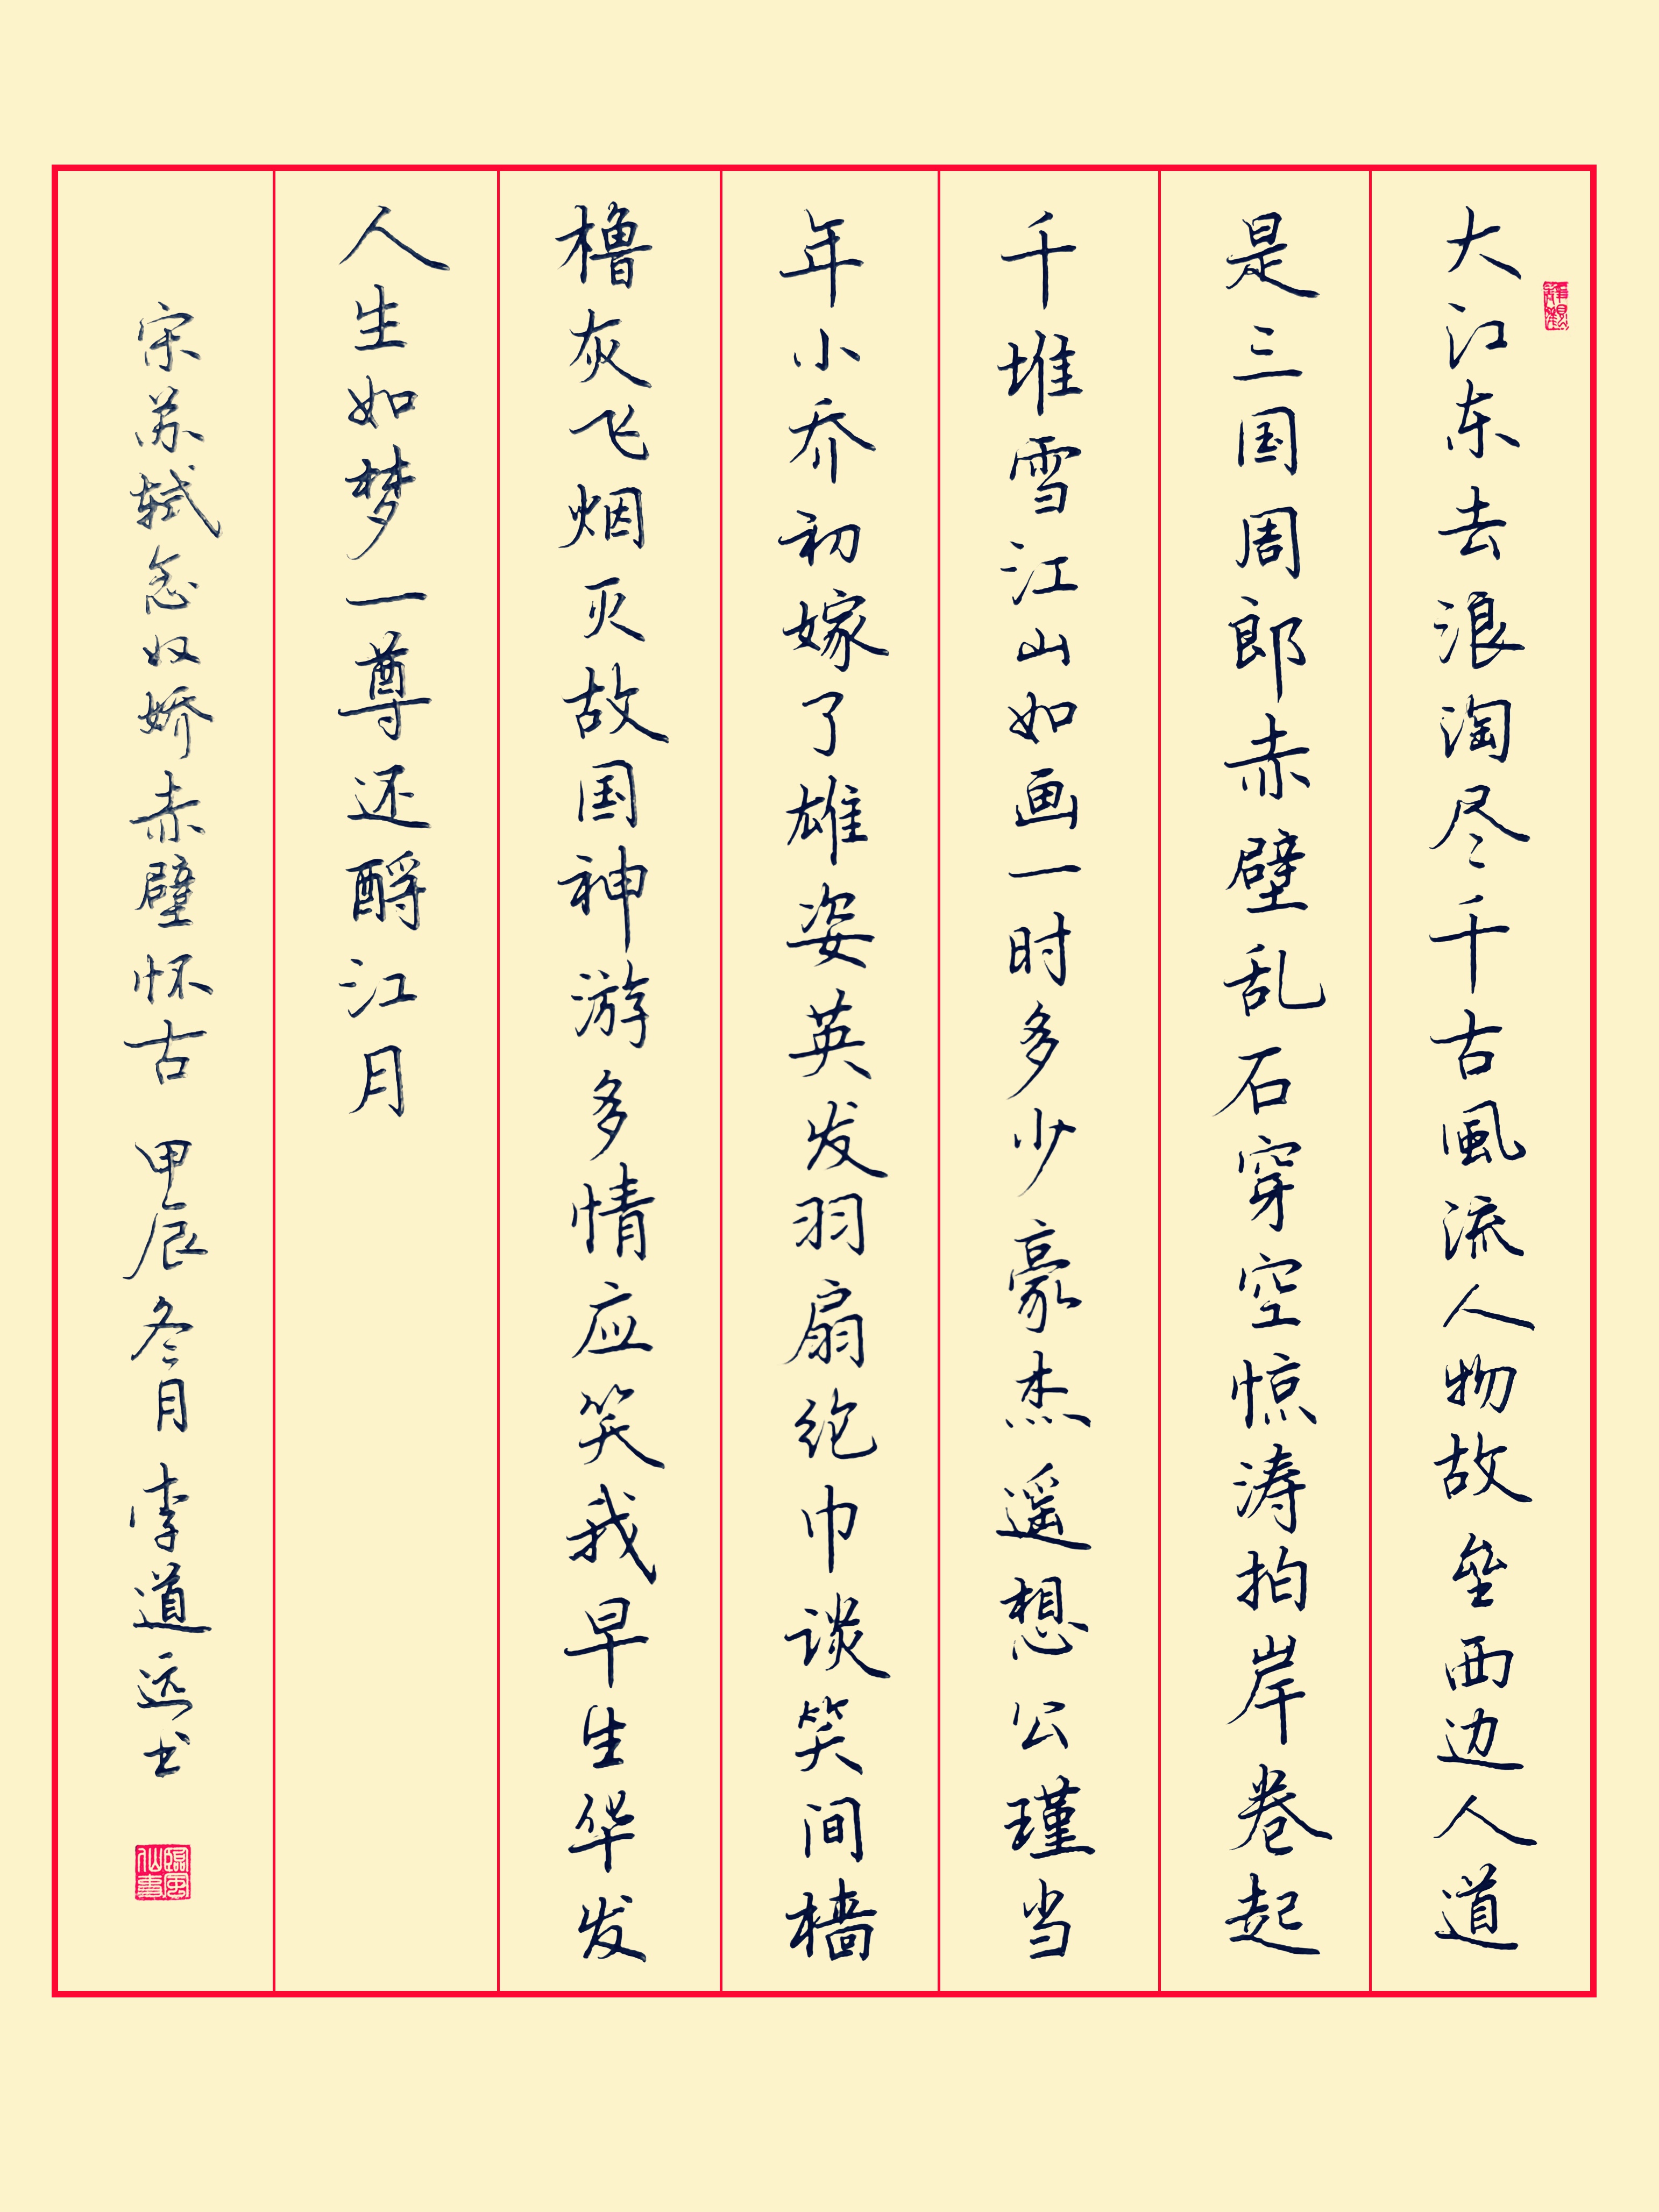 大江东去浪淘尽千古風流人物故垒西边人道
是三国周郎赤壁乱石穿空惊涛拍岸卷起
千堆雪江山如画一时多少豪杰遥想公瑾当
年小乔初嫁了雄姿英发羽扇纶巾谈笑间樯
橹灰飞烟灭故国神游多情应笑我早生华发
人生如梦一尊还酹江月
宋苏轼念奴娇赤壁怀古 甲辰冬月 李道远书
臨風仙書